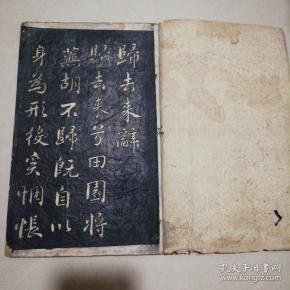 歸去来辭
歸去来兮田園将
蕪胡不歸既自以
身為形役奚惆悵
孔夫子旧书网